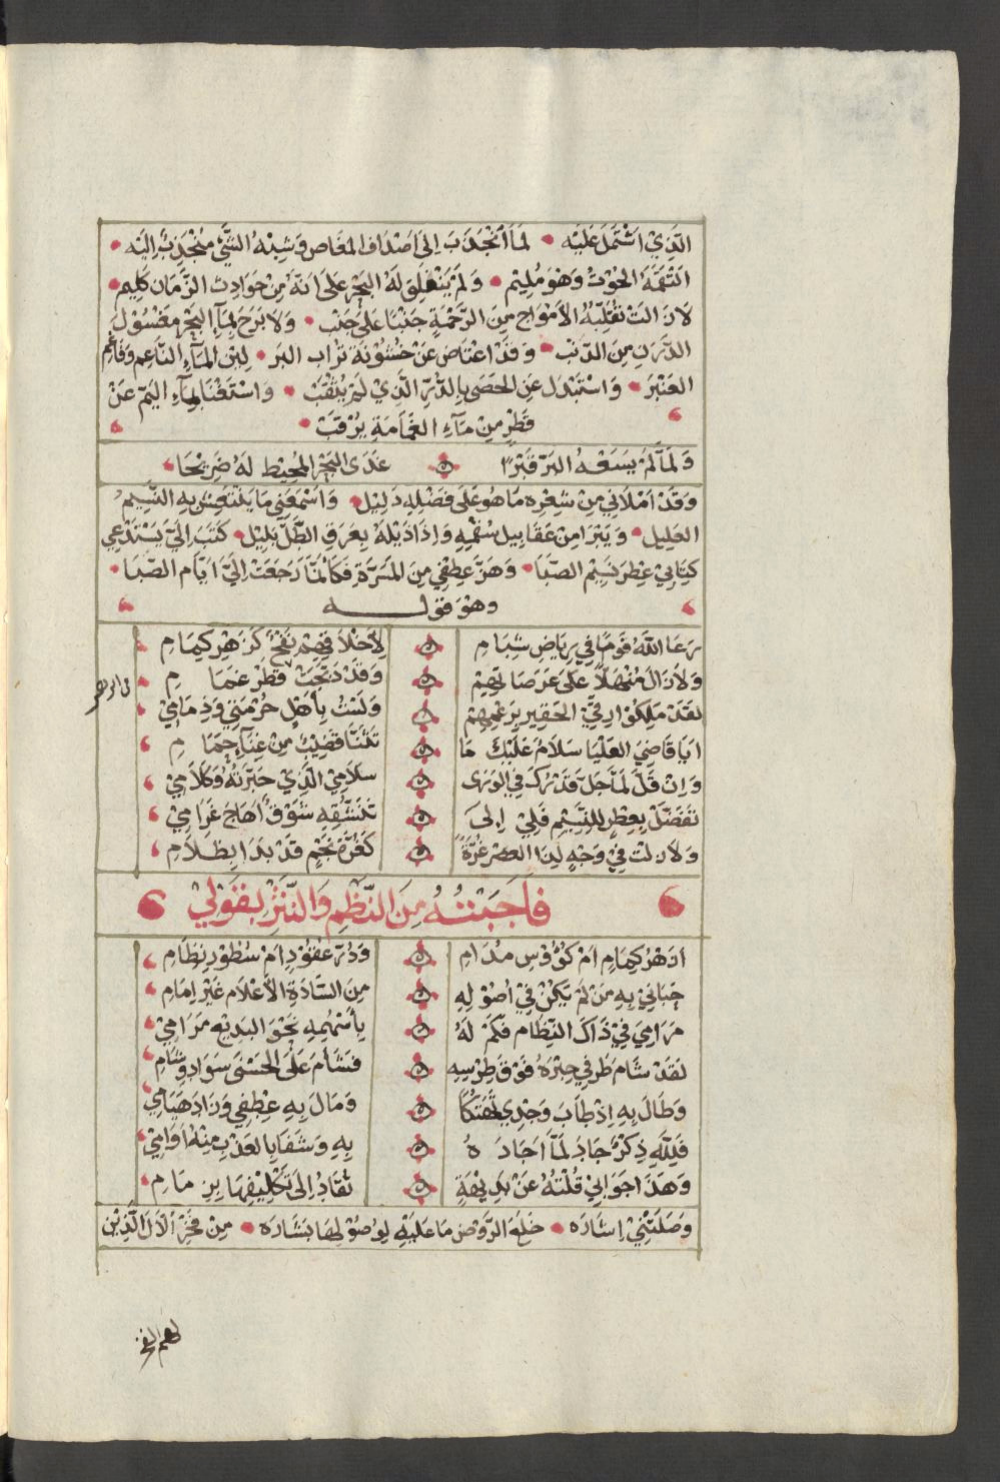 الَّذِيْ اشْتَمَلَ عَلَيْه • لَمَّا انْجَذَبَ اِلَى اَصْدَافِ المَغَاصِ وَشِبْهُ الشَّيْ مُنْجَذِبٌ اِلَيْه •
الْتَقَمَهُ الحُوْتُ وَهْوَ مُلِيْم • وَلَمْ يَنْفَلِقْ لَهُ البَحْرُ عَلَى اَنَّهُ مِنْ حَوَادِثِ الزَّمَانِ كَلِيْم •
لَازَالَتْ تُقَلِّبُهُ الاَمْوَاجُ مِنَ الرَّحْمَةِ جَنْبًا عَلَى جَنْب • وَلَا بَرِحَ بِمَآءِ البَحْرِ مَغْسُوْلَ
الدَّرَنِ مِنَ الذَّنْب • وَقَدْ اعْتَاضَ عَنْ خُشُوْنَةِ تُرَابِ البَر • لِيْنَ المَآءِ النَّاعِمِ وَفَاغِمَ
العَنْبَر • وَاسْتَبْدَلَ عَنِ الحَصَى بِالدُّرِّ الَّذِيْ لَمْ يُثْقَبْ • وَاسْتَغْنَا بِمَآءِ اليَمِّ عَنْ
قَطْرٍ مِنْ مَآءِ الغَمَامَةِ يُرْقَبْ •
وَلَمَّا لَمْ يَسَعْهُ البَرُّ قَبْرًا غَدَى البَحْرُ المُحِيْطُ لَهُ ضَرِيْحَا
وَقَدْ اَمْلَانِيْ مِنْ شِعْرِه مَا هُوَ عَلَى فَضْلِهِ دَلِيْل • وَاَسْمَعَنِي مَا يَنْتَعِشُ بِهِ النَّسِيْمُ
العَلِيْل • وَيَبْرَا مِنْ عَقَابِيْلِ سُقْمِهِ وَاِذَا ذَيْلُهُ بِعَرَقِ الطَّلِّ بَلِيْل • كَتَبَ اِلَيَّ يَسْتَدْعِي
كِتَابِيْ عِطْرَ نَسِيْمِ الصَّبَا • وَهَزَّ عِطْفِي مِنَ المَسَرَّةِ فَكَاَنَّمَا رَجَعَتْ اِلَيَّ اَيَّامُ الصِّبَا •
وهْوَ قَوْلــه
رَعَا اللّٰهُ قَوْمًا فِي رِيَاضِ شِبَامِ لِاَخْلَاقِهِمْ نَفْحٌ كَزَهْرِ كِمَامِ
وَلَازَالَ مُنْهَلًّا عَلَى عَرَصَاتِهِمْ وَقَدْ دَبَّجَتْ قَطْرُ غَمَامِ
لَقَدْ مَلَكُوْا رِقِّيْ الحَقِيْرِ بِرَغْمِهِمْ وَلَسْتُ بِاَهْلٍ حُرْمَتِيْ وَذِمَامِيْ
اَيَا قَاضِيَ العَلْيَا سَلَامٌ عَلَيْكَ مَا تَثَنَّا قَضِيْبٌ مِنْ غِنَآءِ حَمَامِ
وَاِنْ قَلَّ لَمَّا جَلَّ قَدْرُكَ فِي الوَرَى سَلَامِيْ الَّذِيْ حَبَّرْتُهُ وَكَلَامِيْ
تَفَضَّلْ بِعِطْرٍ لِلنَّسِيْمِ فَلِيْ اِلَى تَنَشُّقِهِ شَوْقٌ اَهَاجَ غَرَامِيْ
وَلَازِلْتَ فِيْ وَجْهٍ لِهَذَا العَصْرِ غُرَّةً كَغُرَّةِ نَجْمٍ قَدْ بَدَا بِظَلَامِ
فَاَجَبْتُهُ مِنَ النَّظْمِ وَالنَّثْرِ بِقَوْلِيْ
اَزَهْرُ كِمَامٍ اَمْ كُؤُوْسُ مُدَامِ وَدُرُّ عُقُوْدٍ اَمْ سُطُوْرُ نِظَامِ
حَبَانِيْ بِهِ مَنْ لَمْ يَكُنْ فِيْ اُصُوْلِهِ مِنَ السَّادَةِ الاَعْلَامِ غَيْرُ اِمَامِ
مَرَامِيَ فِيْ ذَاكَ النِّظَامِ فَكَمْ لَهُ بِاَسْهُمِهِ نَحْوَ البَدِيْعِ مَرَامِيْ
لَقَدْ شَامَ طَرْفِي حِبْرَهُ فَوْقَ طِرْسِهِ فَشَامَ عَلَى الحَسْنَى سَوَادَ وِشَامِ
وَطَالَ بِهِ اِذْ طَابَ وَجْدِي تَهَتُّكًا وَمَالَ بِهِ عِطْفِي وَزَادَ هُيَامِيْ
فَلِلَّهِ ذِكْرٌ جَادَ لَمَّا اَجَادَهُ بِهِ وَشَفَا بِالعَذْبِ مِنْهُ اُوَامِيْ
وَهَذَا جَوَابِيْ قُلْتُهُ عَنْ بَدِيْهَةٍ تُقَادُ اِلَى تَكْلِيْفِهَا بِزِمَامِ
وَصَلَتْنِيْ اِشَارَه • خَلَعَ الرَّوْضُ مَا عَلَيْهِ لِوُصُوْلِهَا بَشَارَه • مِنْ فَخْرِ الْآلِ الَّذِيْن
لهم الفخر